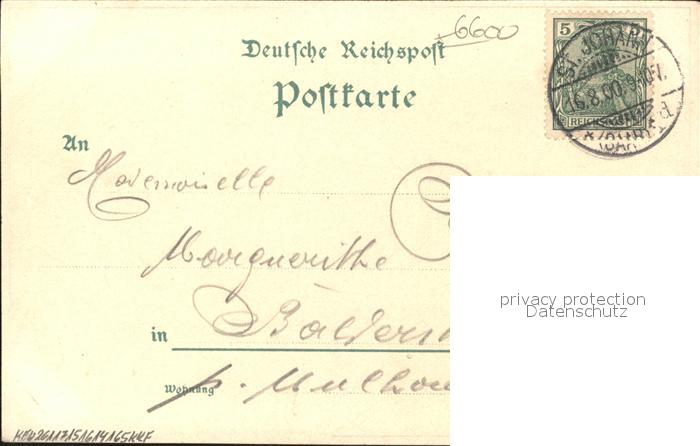 6600
Deutsche Reichspost
Postkarte
5
ST. JOHANN
16.8.00.
REICHSPOST
(SAAR)
An
Mademoiselle
Marguerithe
in Baldersh
Wohnung p. Mulhou
privacy protection
Datenschutz